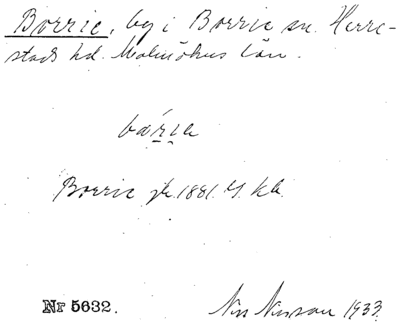 Borrie, by i Borrie sn. Herre-
stads hd. Malmöhus län.
bárie
Borrie jk. 1881. G. Kb.
Nr 5632.
Nils Nilsson 1933.